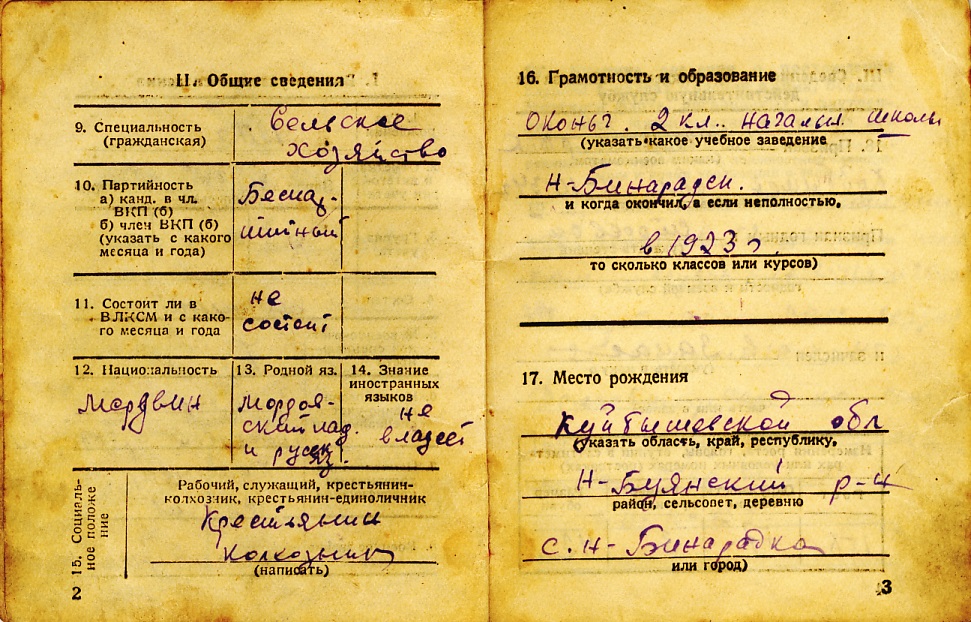 II. Общие сведения
9. Специальность
(гражданская)
Сельское
хозяйство
10. Партийность
а) канд. в чл.
ВКП (б)
б) член ВКП (б)
(указать с какого
месяца и года)
Беспар-
тийный
11. Состоит ли в
ВЛКСМ и с како-
го месяца и года
не
состоит
12. Национальность
Мордвин
13. Родной яз.
Мордов-
ский
и русск.
яз.
14. Знание
иностранных
языков
не
владеет
15. Социаль-
ное положе
ние
Рабочий, служащий, крестьянин-
колхозник, крестьянин-единоличник
Крестьянин
Колхозник
(написать)
2
16. Грамотность и образование
Оконч. 2 кл. начальн школы
(указать какое учебное заведение
Н-Бинарадск.
и когда окончил, а если неполностью,
в 1923 г.
то сколько классов или курсов)
17. Место рождения
Куйбышевской обл
(указать область, край, республику,
Н-Буянский р-н
район, сельсовет, деревню
с. Н-Бинарадка
или город)
3